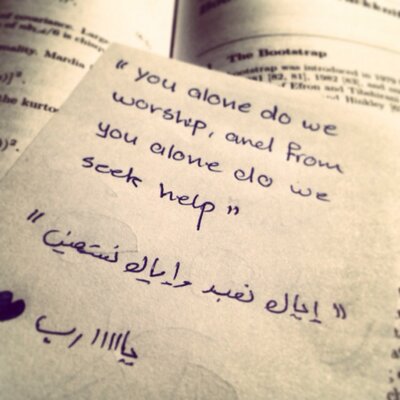 of covariance. Large
is chisq
nality. Mardia
)]².
the kurto
)².
1 The Bootstrap
bootstrap was introduced in 1979
[82, 81], 1982 [83], and
of Efron and Tibshirani
and Hinkley
“ you alone do we
worship, and from
you alone do we
seek help ”
“ إياك نعبد وإياك نستعين ”
يااااارب